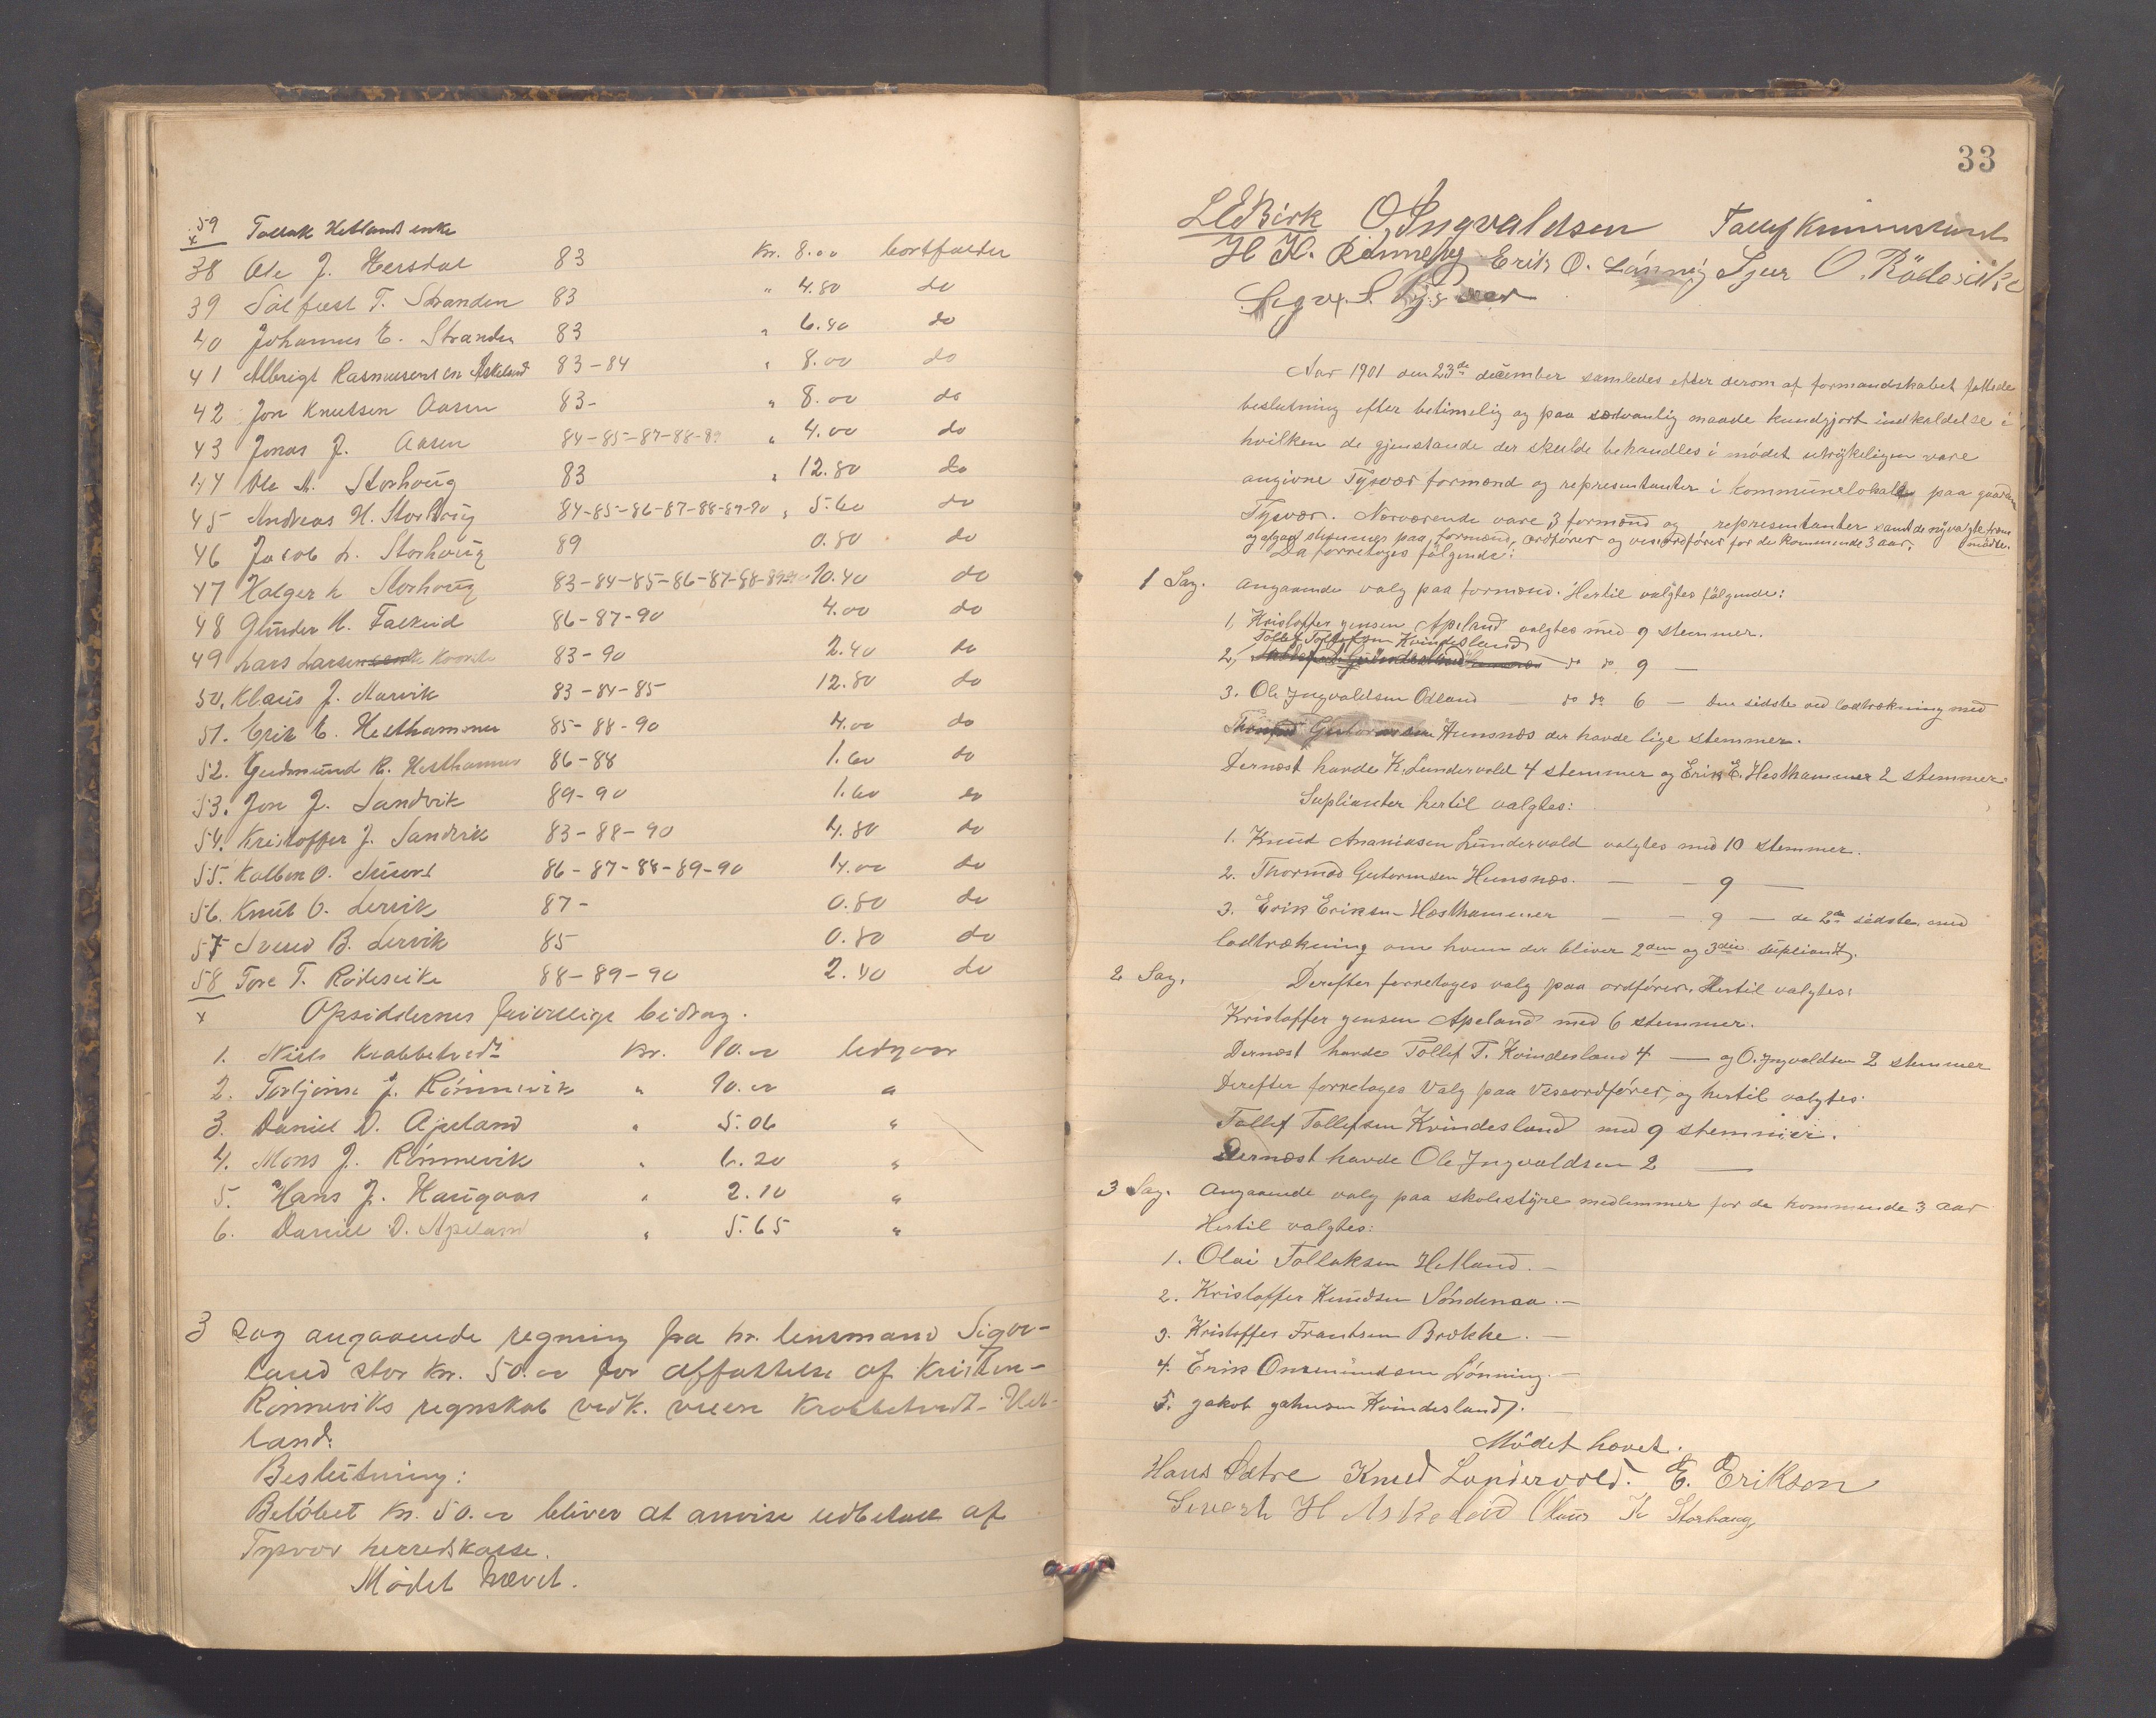 59 Tollak Hetlands enke
x
38 Ole J. Hersdal 83 Kr. 8.00 bortfalder
39 Solfæst T. Stranden 83 " 4.80 do
40 Johannes E. Stranden 83 " 6.40 do
41 Albrigt Rasmusens en Askeland 83-84 " 8.00 do
42 Jon Knutsen Aasen 83- " 8.00 do
43 Jonas J. Aasen 84-85-87-88-89 " 4.00 do
44 Ole A. Storhoug 83 " 12.80 do
45 Andreas H. Storhoug 84-85-86-87-88-89-90 " 5.60 do
46 Jacob L. Storhoug 89 0.80 do
47 Holger L Storhoug 83-84-85-86-87-88-89-90 10.40 do
48 Gunder H. Falkeid 86-87-90 4.00 do
49 Lars Larsen 83-90 2.40 do
50. Klaus J. Marvik 83-84-85 12.80 do
51. Erik E. Hesthammer 85-88-90 4.00 do
52. Gudmund R. Hesthammer 86-88 1.60 do
53. Jon J. Sandvik 89-90 1.60 do
54. Kristoffer J. Sandvik 83-88-90 4.80 do
55. Kolben O. 86-87-88-89-90 4.00 do
56. Knut O. Lervik 87- 0.80 do
57 Svend B. Lervik 85 0.80 do
58 Tore T. Rödesike 88-89-90 2.40 do
x Opsiddernes frivillige bidrag.
1. Niels Krabbetvedt Kr. 10.00 udgaar
2. Torbjörn J. Rönnevik " 10.00 "
3. Daniel D. Apeland " 5.06 "
4. Mons J. Rönnevik " 6.20 "
5. Hans J. Haugaas " 2.10 "
6. Daniel D. Apeland " 5.65 "
3 Sag angaaende regning fra hr. lensmand Sigva-
land stor Kr. 50.00 for affattelse af Kristen
Rönneviks regnskab vedk. veien Krabbetvedt-Het-
land:
Beslutning:
Belöbet Kr. 50.00 bliver at anvise udbetalt af
Tysvær herredskasse.
Mödet hævet.
33
LEBirk O Ingvaldsen Tollef Kvinnesland
H K. Rønnevig Erik O. Lønning Sjur O. Rödesike
S. Tysvær
Aar 1901 den 23de december samledes efter derom af formandskabet fattede
beslutning efter betimelig og paa sedvanlig maade kundgjort indkaldelse i
hvilken de gjenstande der skulde behandles i mödet utrykeligen vare
angivne Tysvær formænd og representanter i kommunelokalet paa gaarden
Tysvær. Nærværende vare 3 formænd og representanter samt de nyvalgte frem
og afgav stemmer paa formænd, ordförer og viseordförer for de kommende 3 aar. mödte.
Da forretoges fölgende:
1 Sag. Angaaende valg paa formænd. Hertil valgtes fölgende:
1, Kristoffer Jensen Apeland valgtes med 9 stemmer.
Tollef Tollefsen Kvindesland
2, do do 9 —
3. Ole Ingvaldsen Odland — do do 6 — Den sidste ved lodtrækning med
Thormod Gutormsen Hunsnæs der havde lige stemmer.
Dernæst havde K. Lundervold 4 stemmer og Erik E. Hesthammer 2 stemmer.
Suplianter hertil valgtes:
1. Knud Ananiasen Lundervold valgtes med 10 stemmer.
2. Thormod Gutormsen Hunsnæs. — - 9 —
3. Erik Eriksen Hesthammer — - 9 — de 2de sidste med
lodtrækning om hvem der bliver 2den og 3die supliant.
2 Sag. Derefter forretoges valg paa ordförer. Hertil valgtes:
Kristoffer Jensen Apeland med 6 stemmer.
Dernæst havde Tollef T. Kvindesland 4 — og O. Ingvaldsen 2 stemmer
Derefter forretoges Valg paa Viseordförer, og hertil valgtes:
Tollef Tollefsen Kvindesland med 9 stemmer.
Dernæst havde Ole Ingvaldsen 2 —
3 Sag. Angaaende valg paa skolestyre medlemmer for de kommende 3 aar
Hertil valgtes:
1. Olai Tollaksen Hetland. —
2. Kristoffer Knudsen Söndenaa. —
3. Kristoffer Frantsen Brække. —
4. Erik Omundsen Lönning. —
5. Jakob Jahnsen Kvindesland. —
Mödet hævet.
Hans Sætre Knud Lundervold. E. Erikson
Sivert H Askeland Claus K Storhaug